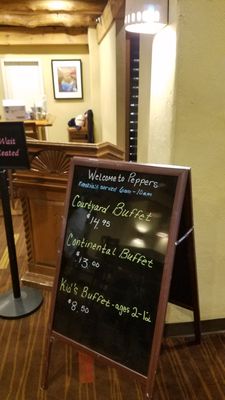 Wait
Seated
Welcome to Peppers
Breakfast served 6am - 10am
Courtyard Buffet
$14.95
Continental Buffet
$13.00
Kid's Buffet - ages 2-12
$8.50